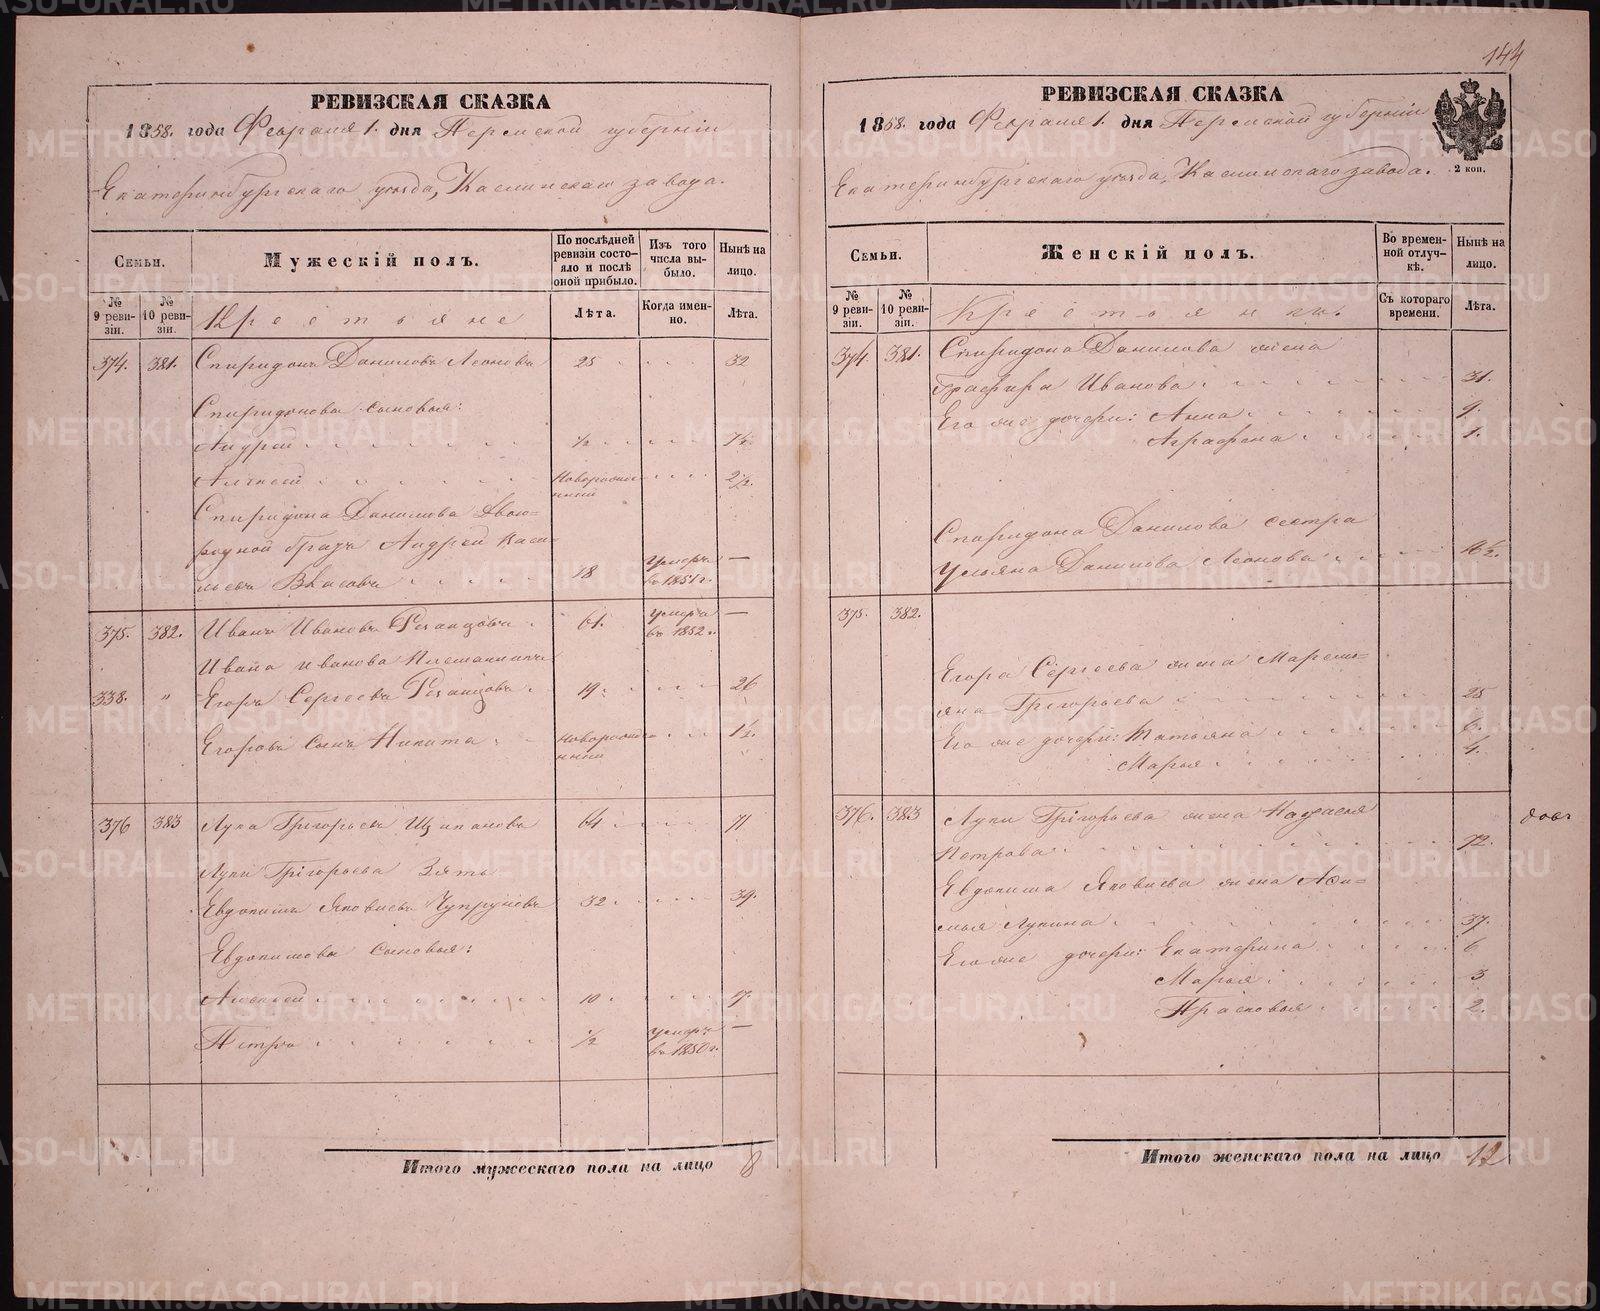 144
РЕВИЗСКАЯ СКАЗКА
1858. года Февраля 1. дня Пермской губерніи
Екатеринбургскаго уѣзда, Каслинскаго завода.
Семьи.
№ 9 ревизіи.
№ 10 ревизіи.
Мужескій полъ.
По послѣдней ревизіи состояло и послѣ оной прибыло.
Изъ того числа выбыло.
Нынѣ на лицо.
Крестьяне
Лѣта.
Когда именно.
Лѣта.
374. 381. Спиридонъ Даниловъ Леоновъ 25 32
Спиридонова сыновья:
Андрей 1/2 7½
Алексѣй Новорожденный 2½
Спиридона Данилова двою-
родной братъ Андрей Васи-
льевъ Власовъ 18 Умеръ въ 1851 г. —
375. 382. Иванъ Ивановъ 61. умеръ въ 1852 г. —
Ивана Иванова племянникъ
338. " Егоръ Сергеевъ 19. 26
Егоровъ сынъ Никита Новорожденный 1½
376 383 Лука Григорьевъ Щипановъ 64 71
Луки Григорьева зять
Евдокимъ Яковлевъ Чупруновъ 32 39.
Евдокимовы сыновья:
Алексѣй 10 17.
Петръ 1/2 умеръ въ 1850 г. —
Итого мужескаго пола на лицо 8
РЕВИЗСКАЯ СКАЗКА
1858. года Февраля 1. дня Пермской губерніи
Екатеринбургскаго уѣзда, Каслинскаго завода.
2 коп.
Семьи.
№ 9 ревизіи.
№ 10 ревизіи.
Женскій полъ.
Во временной отлучкѣ.
Нынѣ на лицо.
Крестьянки.
Съ котораго времени.
Лѣта.
374 381. Спиридона Данилова жена
Глафира Иванова 31.
Его же дочери: Анна 9.
Аграфена 1.
Спиридона Данилова сестра
Ульяна Данилова Леонова
375. 382.
Егора Сергеева жена Маремь-
яна Григорьева 25
Его же дочери: Татьяна 6.
Марья 4.
376. 383 Луки Григорьева жена
Петрова 72.
Евдокима Яковлева жена Афи-
мья Лукина 37.
Его же дочери: Екатерина 6
Марья 3
Прасковья 2.
Итого женскаго пола на лицо 12
METRIKI.GASO-URAL.RU